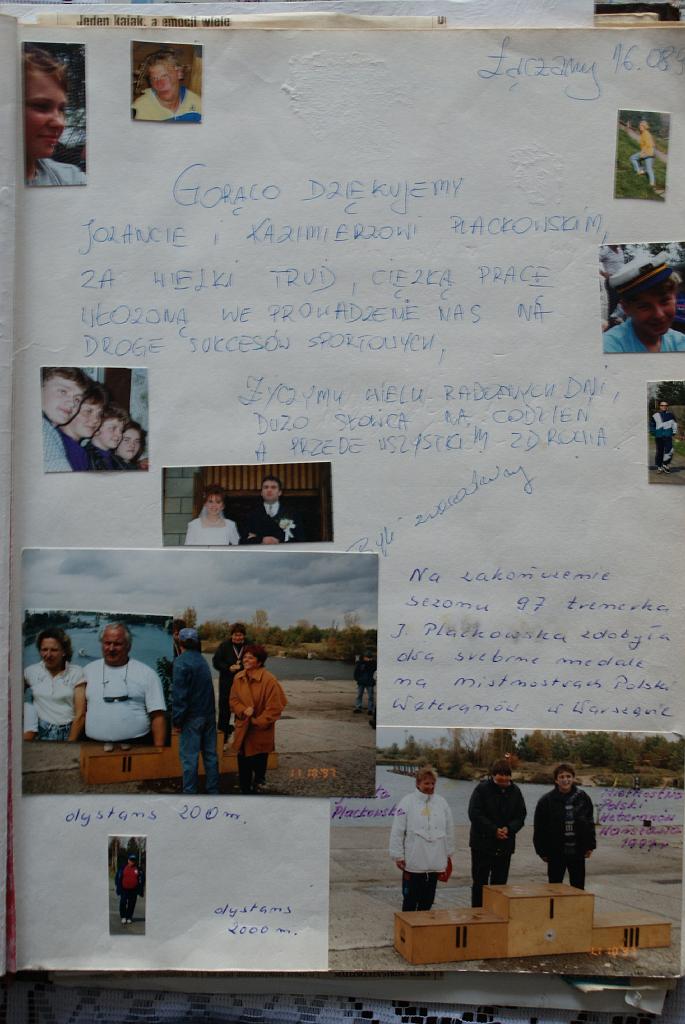 Jeden kajak, a emocji wiele
Łączamy 16.08.9
GORĄCO DZIĘKUJEMY
JOLANCIE i KAZIMIERZOWI PLACKOWSKIM,
ZA WIELKI TRUD, CIĘŻKĄ PRACĘ
WŁOŻONĄ WE PROWADZENIE NAS NA
DROGE SUKCESÓW SPORTOWYCH,
ŻYCZYMY WIELU RADOSNYCH DNI,
DUŻO SŁOŃCA NA CODZIEŃ
A PRZEDE WSZYSTKIM ZDROWIA
Na zakończenie
sezonu 97 trenerka
J. Plackowska zdobyła
dwa srebrne medale
na mistrzostwach Polski
Weteranów w Warszawie
II
11.10.97
dystans 200 m.
Plackowska
Mistrzostwa
Polski
Weteranów
Warszawa
1997r
dystans
2000 m.
II
I
III